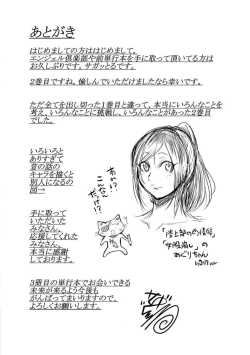 あとがき
はじめましての方ははじめまして、
エンジェル倶楽部や前単行本を手に取って頂いてる方は
お久しぶりです、サガッとるです。
2巻目ですね。愉しんでいただけましたなら幸いです。
ただ全てを出し切った1巻目と違って、本当にいろんなことを
考え、いろんなことに挑戦し、いろんなことがあった2巻目
でした。
いろいろと
ありすぎて
昔の話の
キャラを描くと
別人になるの
図→
手に取って
いただいた
みなさん、
応援してくれた
みなさん、
本当に感謝
しております。
3冊目の単行本でお会いできる
未来が来るよう今後も
がんばってまいりますので、
よろしくお願いします。
めぐりちゃん